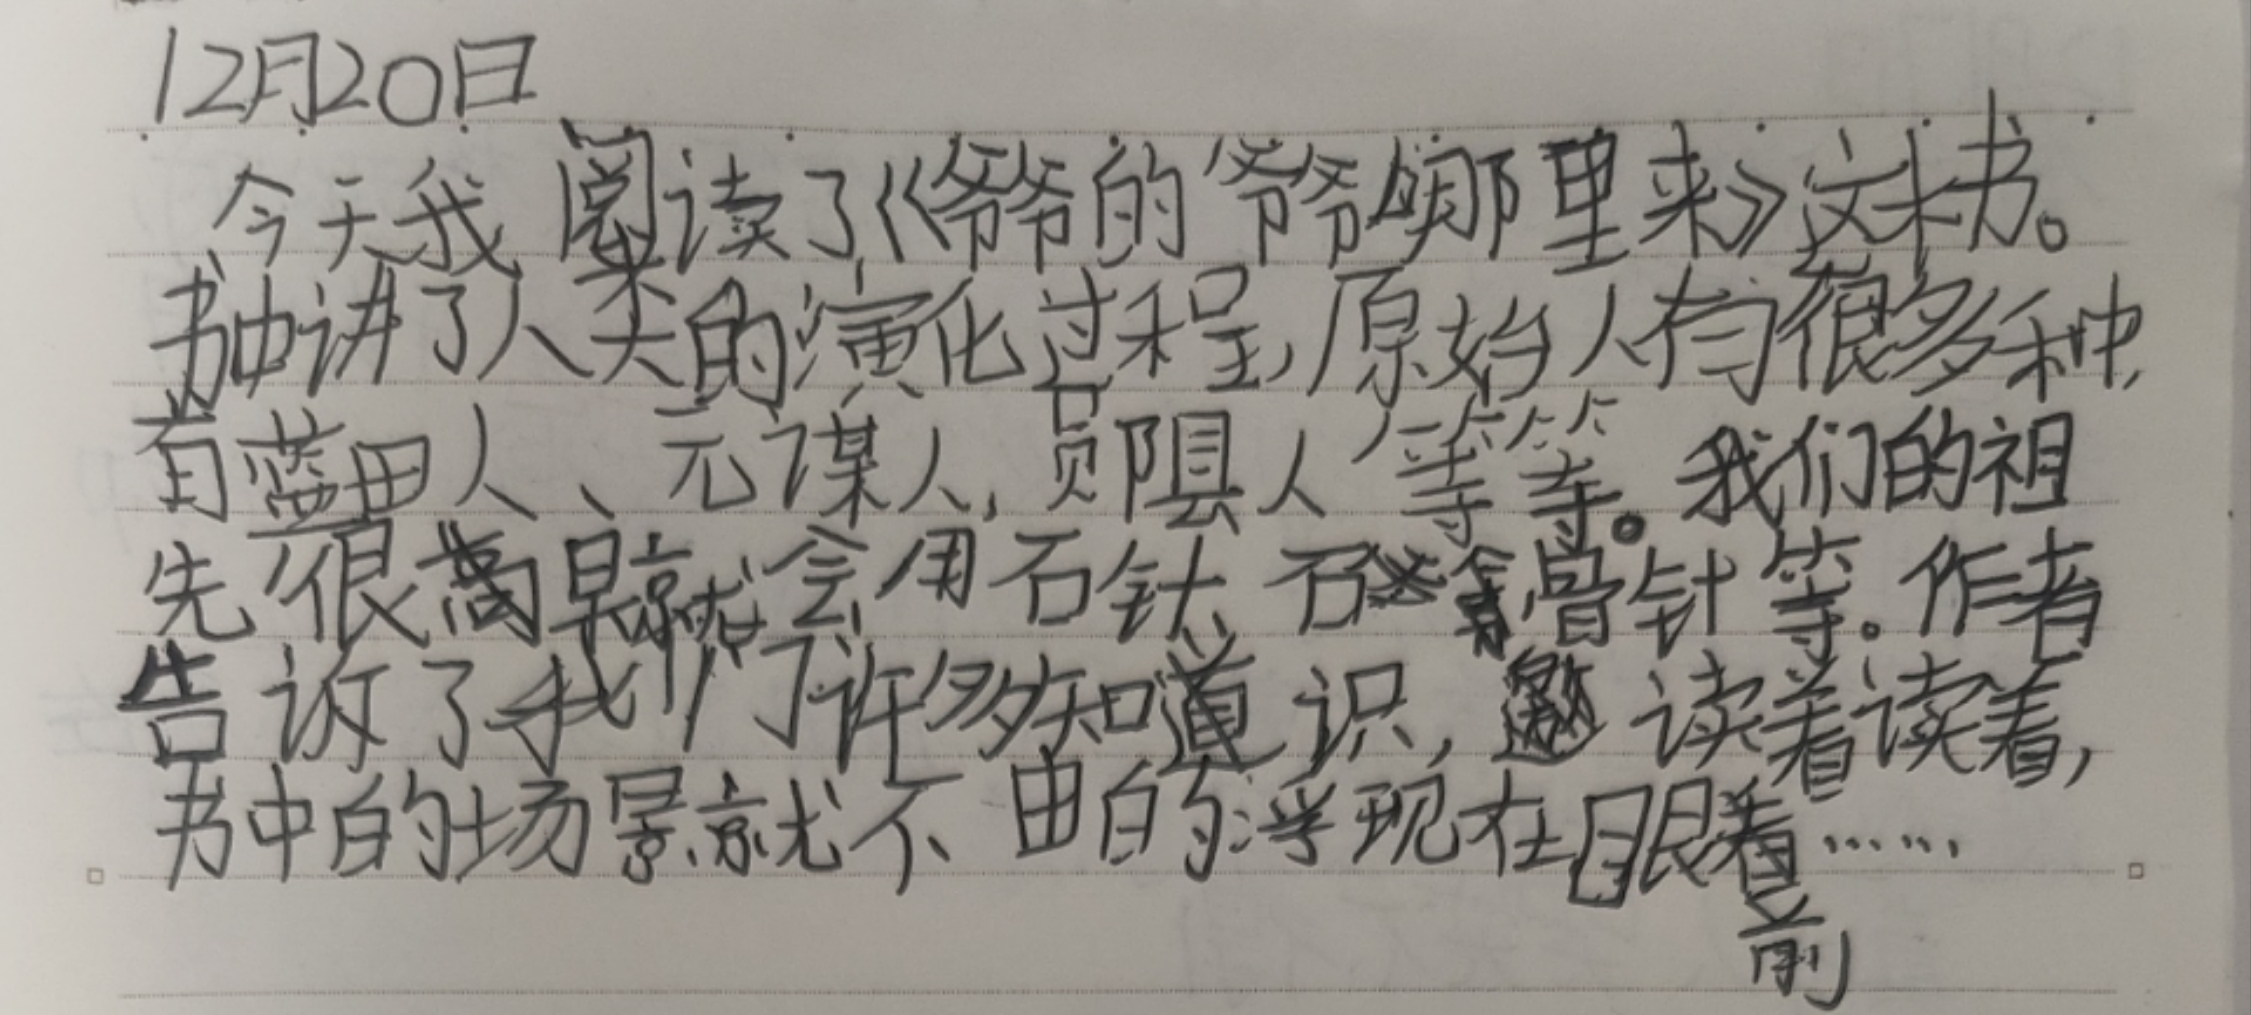 12月20日
今天我阅读了《爷爷的爷爷哪里来》这本书。
书中讲了人类的演化过程,原始人有很多种,
有蓝田人、元谋人,郧县人等等。我们的祖
先很早就会用石钻、石、骨针等。作者
告诉了我们许多知道识,读着读着,
书中的场景就不由的浮现在眼前……